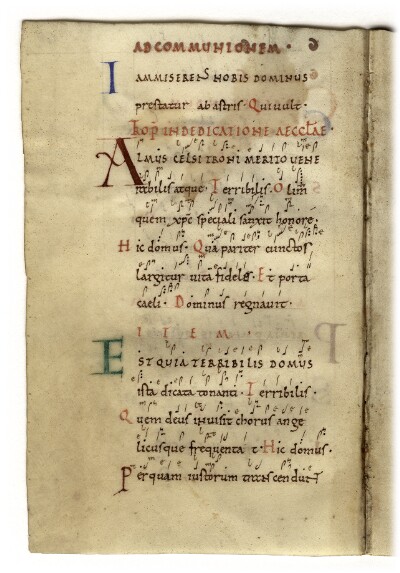 AD COMMUNIONEM.
IAM MISERENS NOBIS DOMINUS
prestatur ab astris. Qui vult.
TROP IN DEDICATIONE AECCLAE.
ALMUS CELSITRONI MERITO VENE
rabilis atque. Terribilis. Olim
quem xpc speciali sanxit honore.
Hic domus. Qua pariter cunctos
largitur vita fideles. Et porta
caeli. Dominus regnavit.
ITEM.
EST QUIA TERRIBILIS DOMUS
ista dicata tonanti. Terribilis.
Quem deus invisit chorus ange
licusque frequentat. Hic domus.
Per quam iustorum